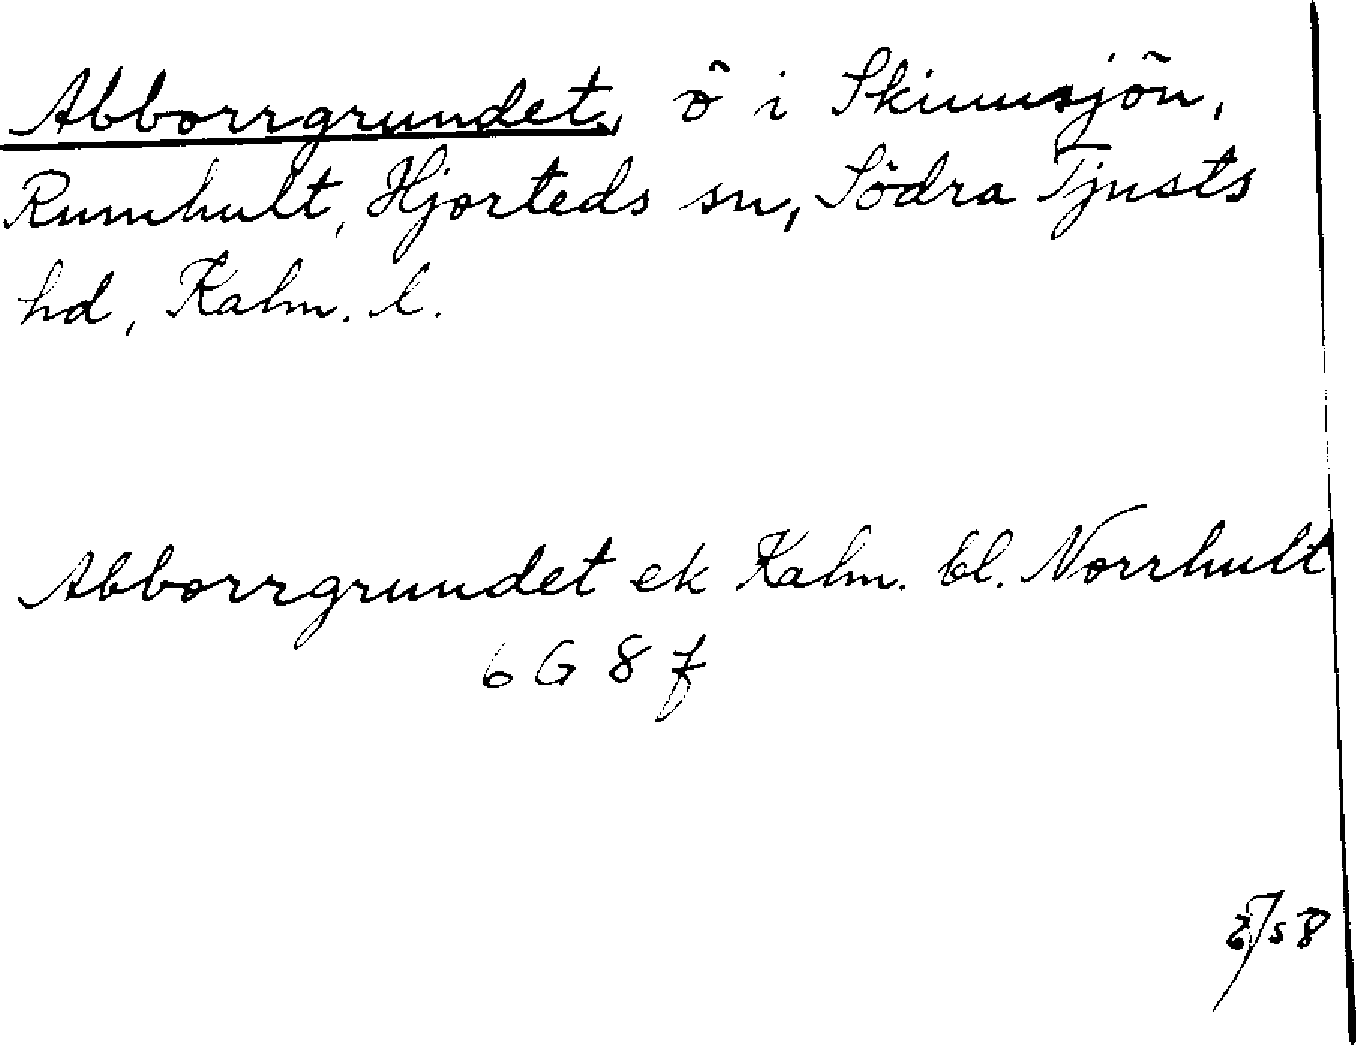 Abborrgrundet, ö i Skinnsjön,
Rumhult, Hjorteds sn, Södra Tjusts
hd, Kalm. l.
Abborrgrundet ek Kalm. bl. Norrhult
6 G 8 f